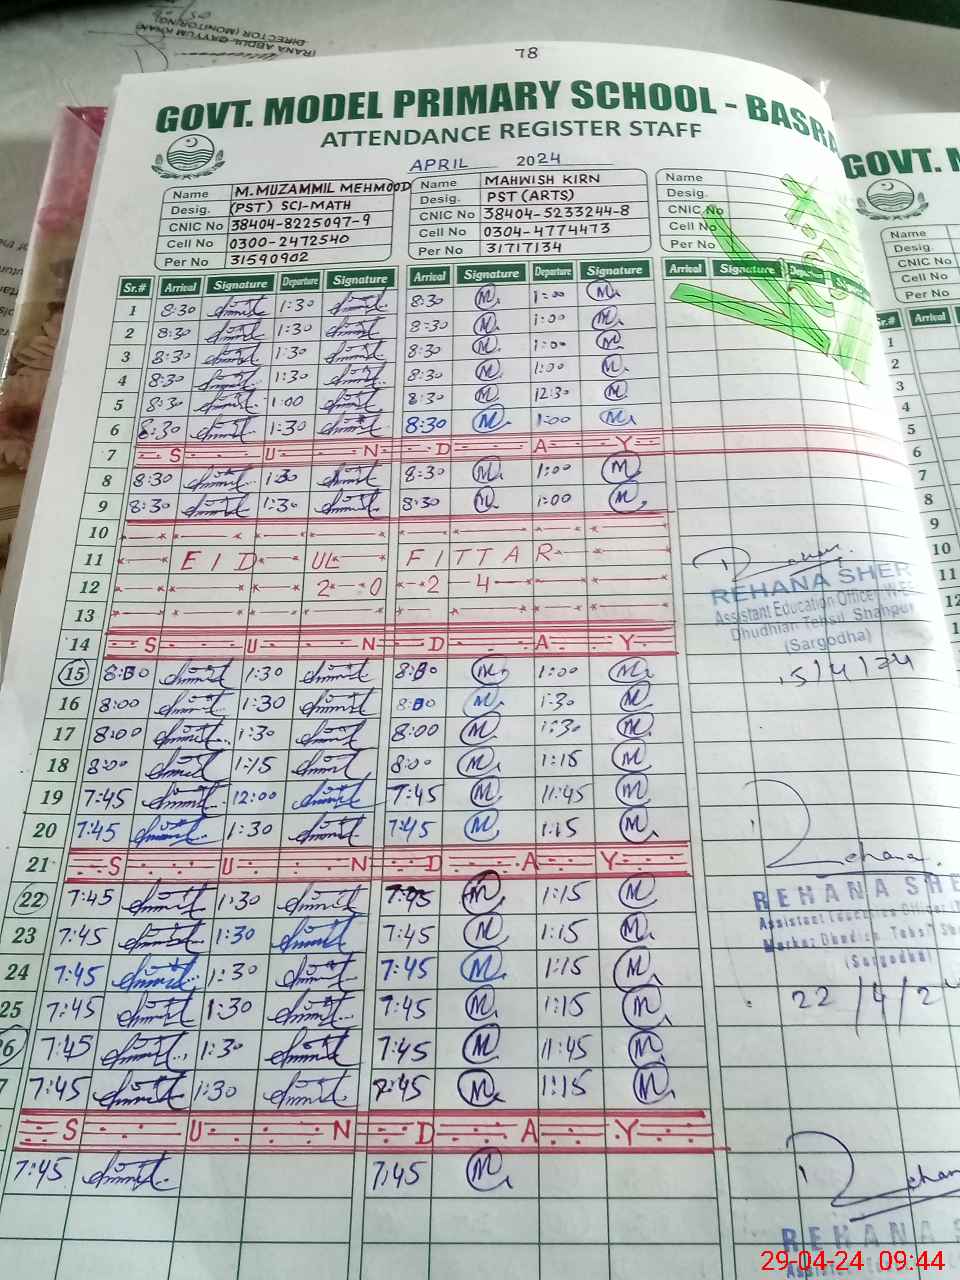 (RANA ABDUL QAYYUM KHAN)
DIRECTOR (MONITORING)
78
GOVT. MODEL PRIMARY SCHOOL - BASRA
ATTENDANCE REGISTER STAFF
APRIL 2024
Name M. MUZAMMIL MEHMOOD Name MAHWISH KIRN Name
Desig. (PST) SCI-MATH Desig. PST (ARTS) Desig.
CNIC No 38404-8225097-9 CNIC No 38404-5233244-8 CNIC No
Cell No 0300-2472540 Cell No 0304-4774473 Cell No
Per No 31590902 Per No 31717134 Per No
Sr.# Arrival Signature Departure Signature Arrival Signature Departure Signature Arrival Signature
1 8:30 1:30 8:30 M 1:00 M
2 8:30 1:30 8:30 M 1:00 M
3 8:30 1:30 8:30 M 1:00 M
4 8:30 1:30 8:30 M 1:00 M
5 8:30 1:00 8:30 M 12:30 M
6 8:30 1:30 8:30 M 1:00 M
7 S U N D A Y
8 8:30 1:30 8:30 M 1:00 M
9 8:30 1:30 8:30 M 1:00 M
10
11 EID UL FITTAR
12 2024
13
14 S U N D A Y
15 8:00 1:30 8:00 M 1:00 M
16 8:00 1:30 8:00 M 1:30 M
17 8:00 1:30 8:00 M 1:30 M
18 8:00 1:15 8:00 M 1:15 M
19 7:45 12:00 7:45 M 11:45 M
20 7:45 1:30 7:45 M 1:15 M
21 S U N D A Y
22 7:45 1:30 7:45 M 1:15 M
23 7:45 1:30 7:45 M 1:15 M
24 7:45 1:30 7:45 M 1:15 M
25 7:45 1:30 7:45 M 1:15 M
26 7:45 1:30 7:45 M 11:45 M
7 7:45 1:30 7:45 M 1:15 M
S U N D A Y
7:45 7:45 M
REHANA SHER
Assistant Education Officer
Dhudhian Tehsil Shahpur
(Sargodha)
15/4/24
REHANA SHE
Assistant Education Officer
Markaz Dhudian Tehsil Sha
(Sargodha)
22/4/2
REHANA S
Assistant
GOVT. M
Name
Desig.
CNIC No
Cell No
Per No
Sr.# Arrival
1
2
3
4
5
6
7
8
9
10
11
12
1
29-04-24 09:44